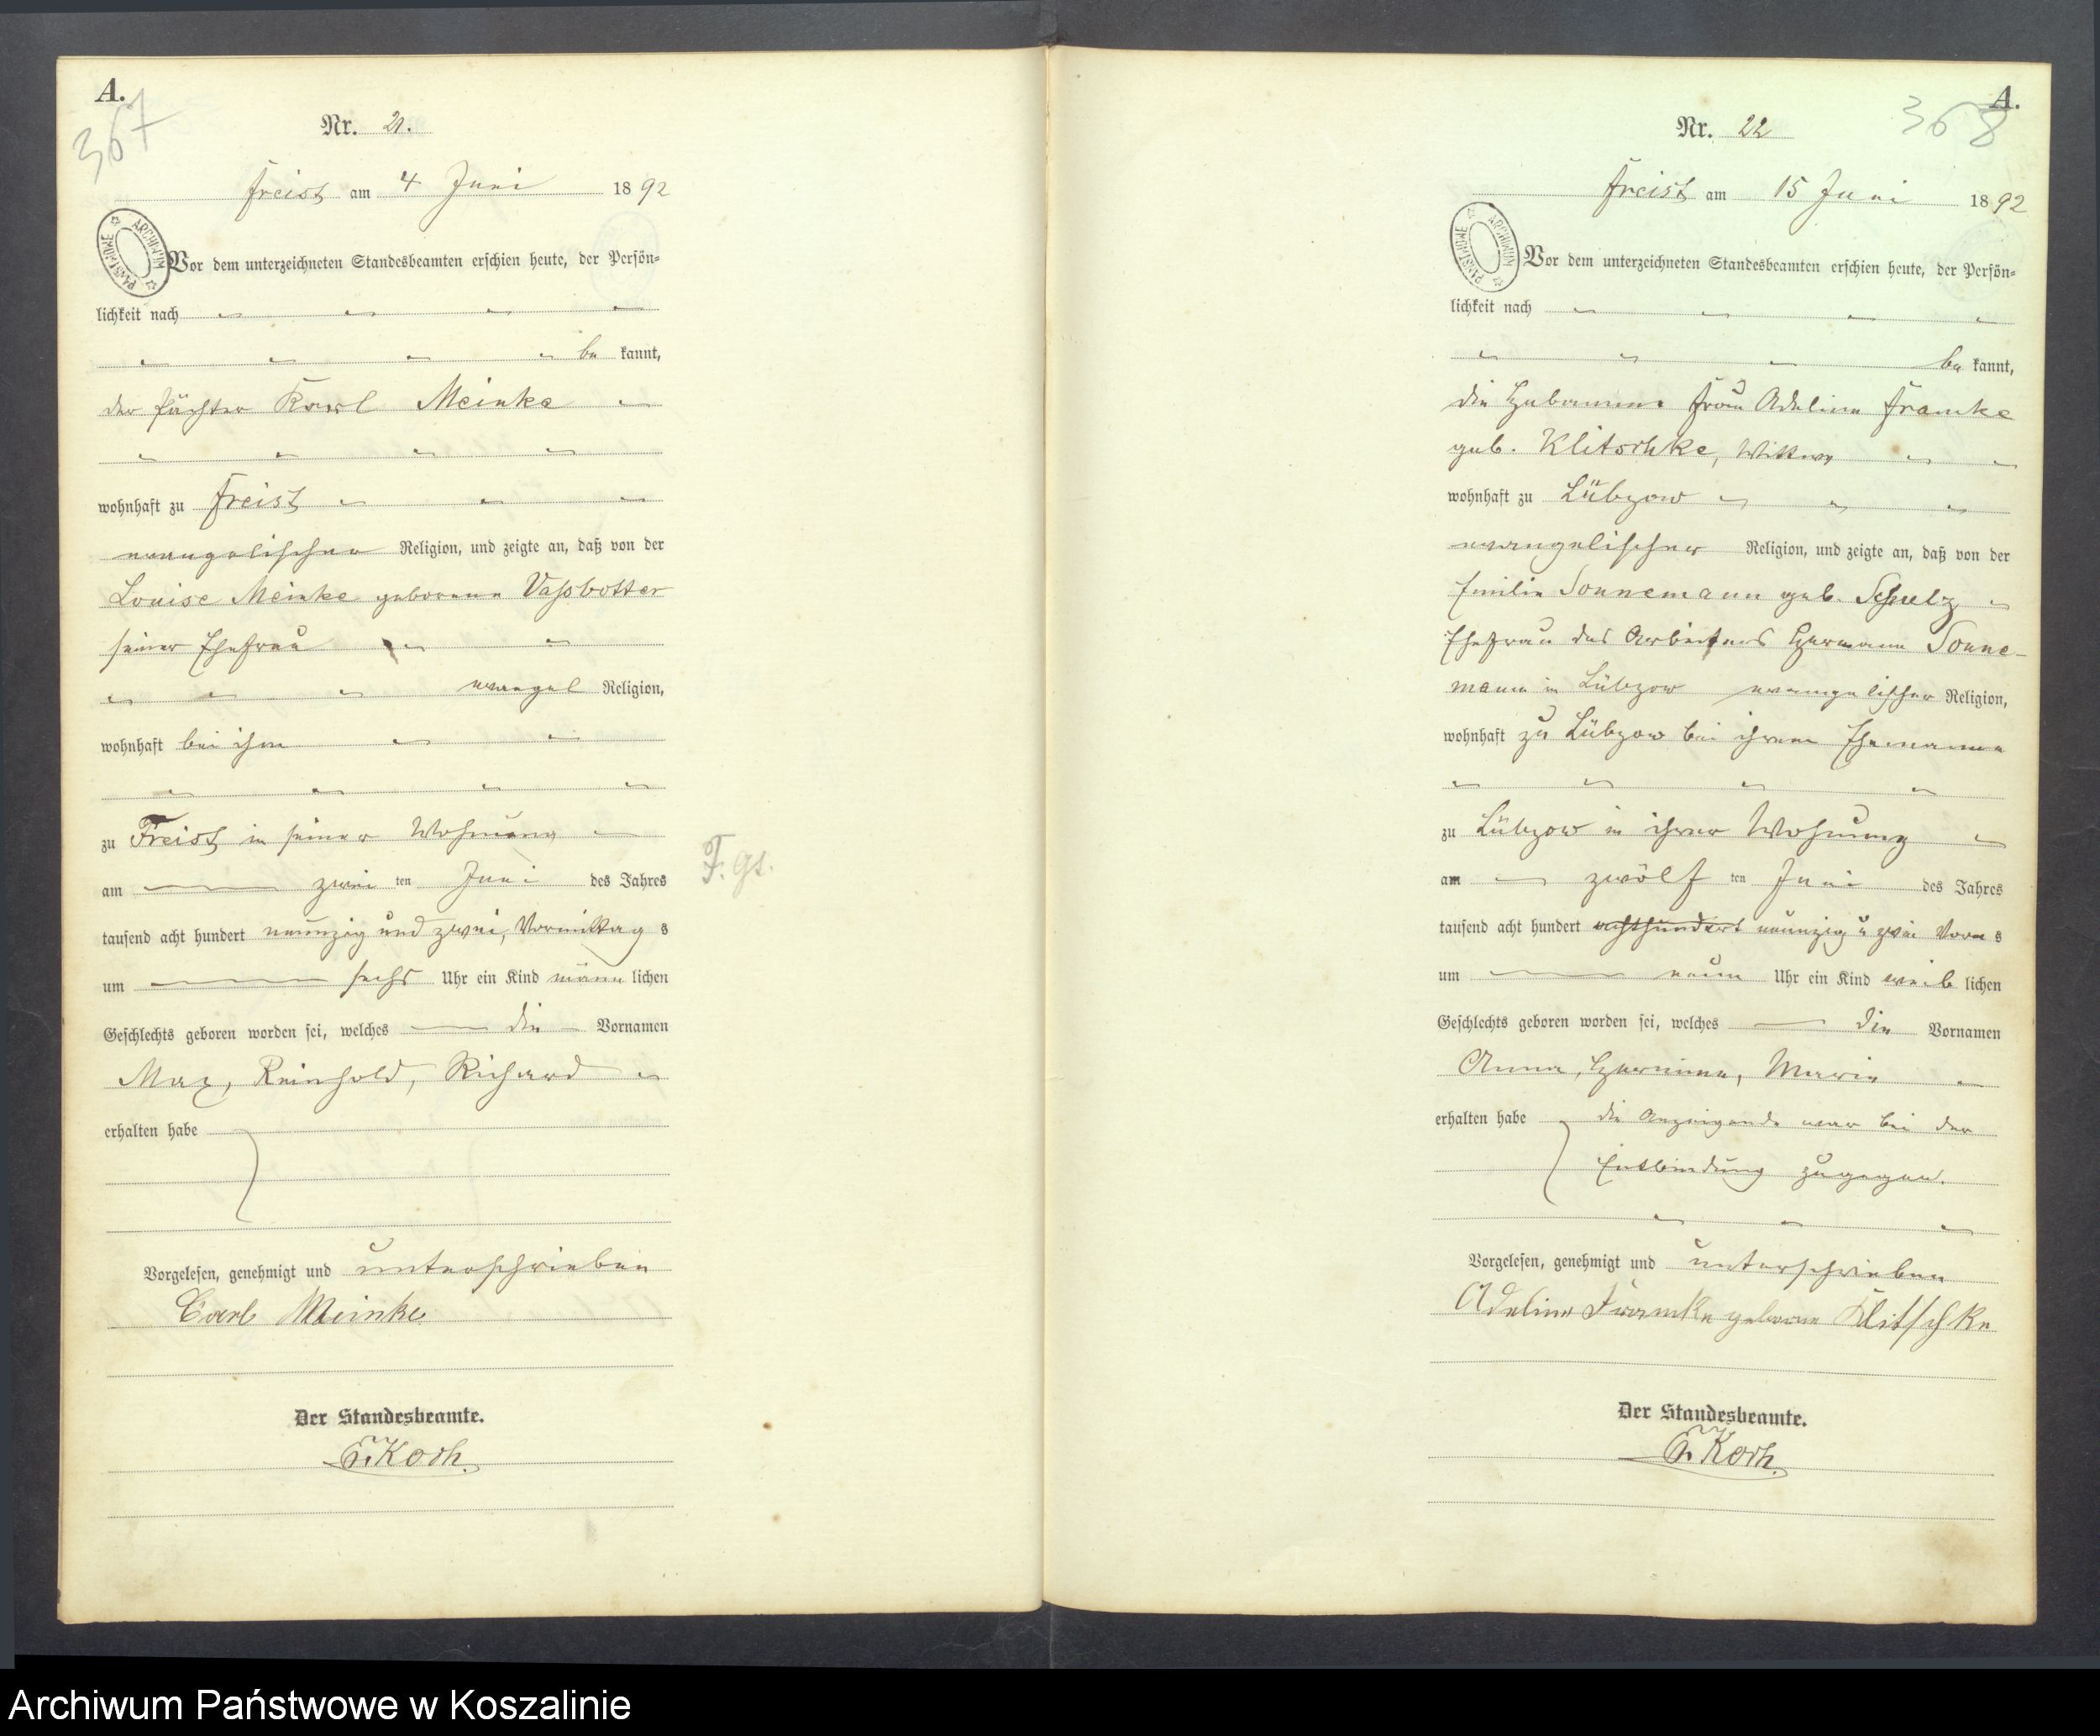 A.
367
Nr. 21.
Freist am 4 Juni 1892
ARCHIWUM PAŃSTWOWE
Vor dem unterzeichneten Standesbeamten erschien heute, der Persön-
lichkeit nach
be kannt,
der Pächter Karl Meinke
wohnhaft zu Freist
evangelischer Religion, und zeigte an, daß von der
Louise Meinke geborene Vaßbotter
seiner Ehefrau
evangel Religion,
wohnhaft bei ihm
zu Freist in seiner Wohnung
am zwei ten Juni des Jahres
tausend acht hundert neunzig und zwei, Vormittag s
um sechs Uhr ein Kind männ lichen
Geschlechts geboren worden sei, welches die Vornamen
Max, Reinhold, Richard
erhalten habe
Vorgelesen, genehmigt und unterschrieben
Carl Meinke
Der Standesbeamte.
Koch.
F. gs.
A.
368
Nr. 22
Freist am 15 Juni 1892
ARCHIWUM PAŃSTWOWE
Vor dem unterzeichneten Standesbeamten erschien heute, der Persön-
lichkeit nach
be kannt,
die Hebamme Frau Adeline Framke
geb. Klitschke, Wittwe
wohnhaft zu Lübzow
evangelischer Religion, und zeigte an, daß von der
Emilie Sonnemann geb. Schulz
Ehefrau des Arbeiters Hermann Sonne-
mann in Lübzow evangelischer Religion,
wohnhaft zu Lübzow bei ihrem Ehemanne
zu Lübzow in ihrer Wohnung
am zwölf ten Juni des Jahres
tausend acht hundert achthundert neunzig u zwei Vorm s
um neun Uhr ein Kind weib lichen
Geschlechts geboren worden sei, welches die Vornamen
Anna, Hermine, Marie
erhalten habe die Anzeigende war bei der
Entbindung zugegen.
Vorgelesen, genehmigt und unterschrieben
Adeline Framke geborne Klitschke
Der Standesbeamte.
Koch.
Archiwum Państwowe w Koszalinie